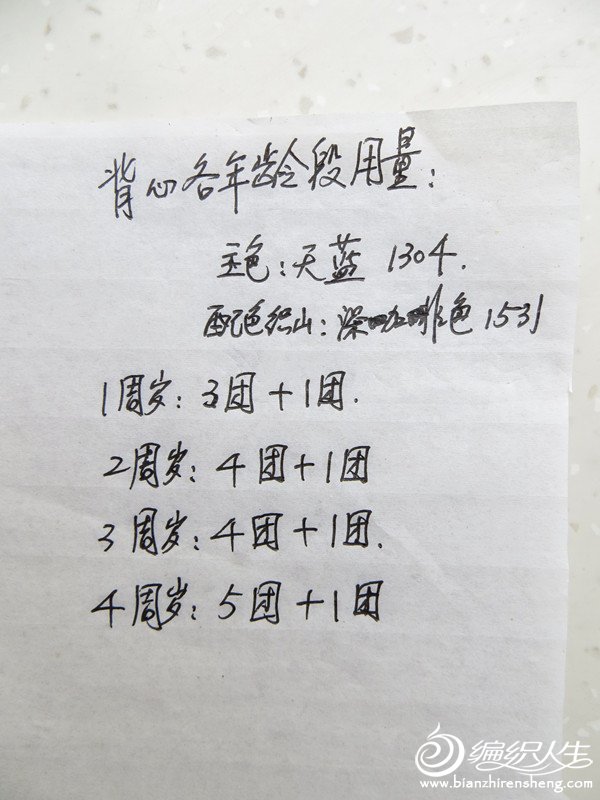 背心各年龄段用量：
主色：天蓝 1304.
配色织山：深咖啡色 1531
1周岁：3团+1团.
2周岁：4团+1团
3周岁：4团+1团.
4周岁：5团+1团
编织人生
www.bianzhirensheng.com